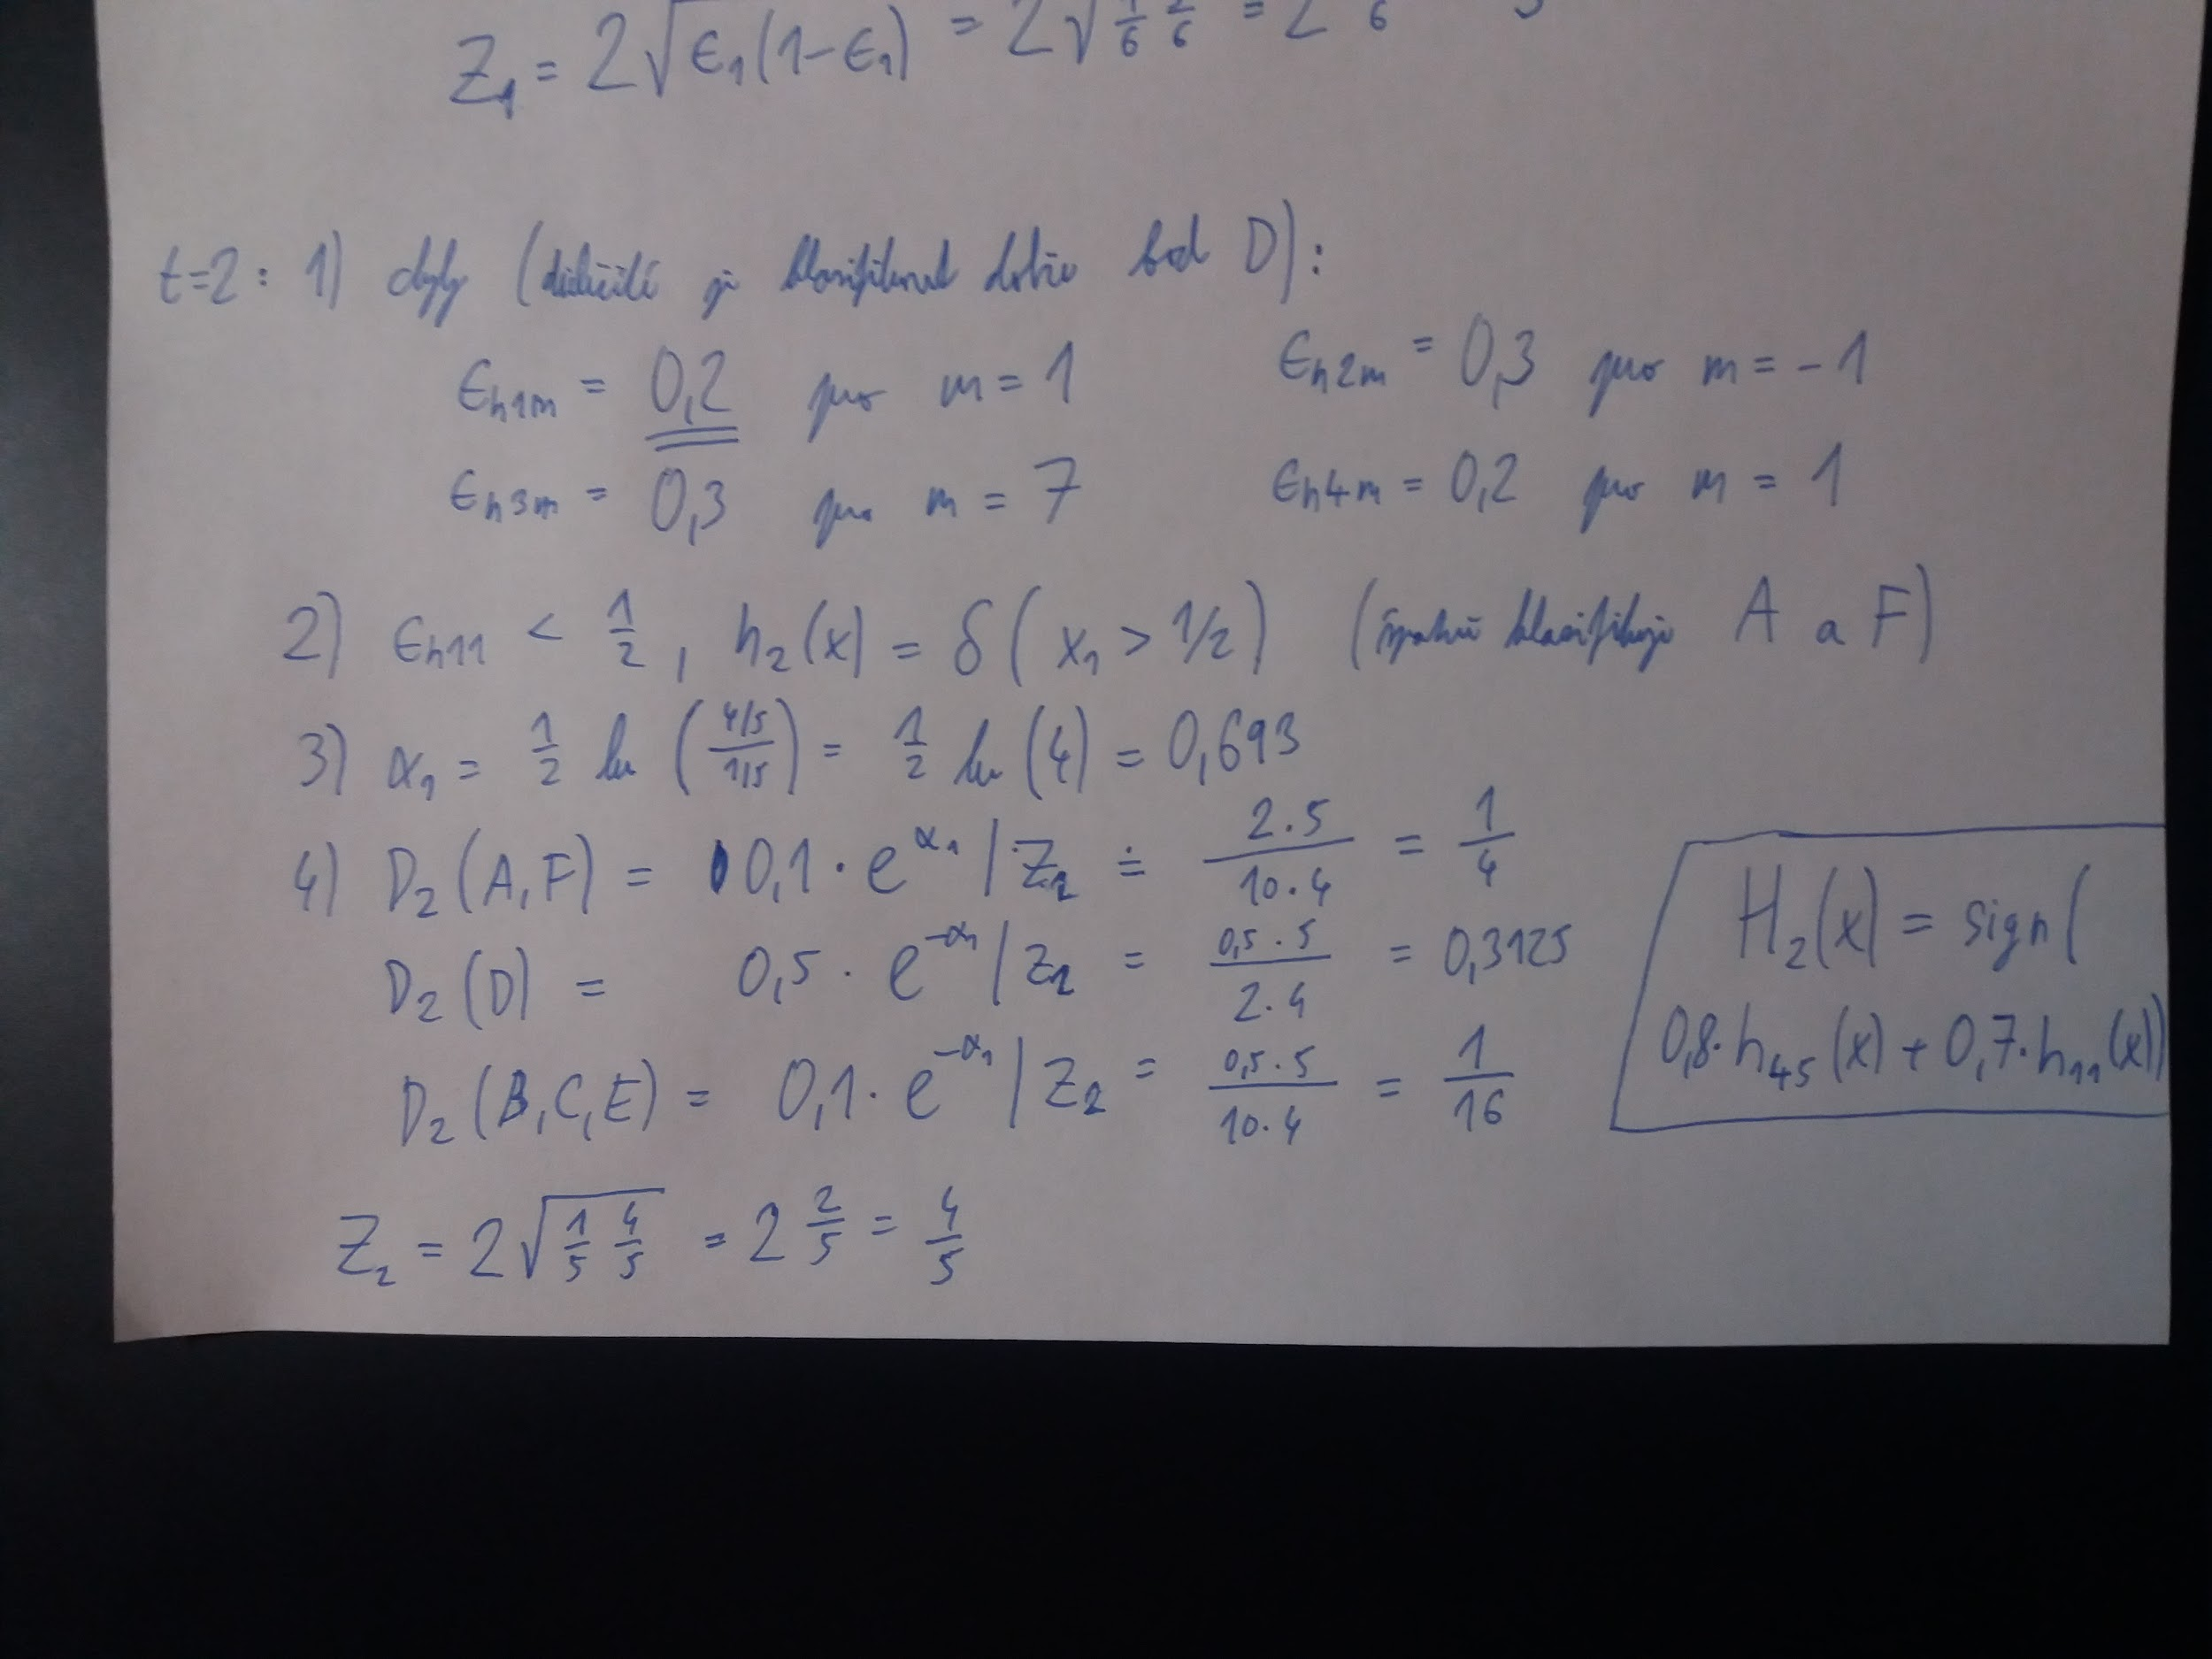 Z₁ = 2√(ε₁(1-ε₁)) = 2√(1/6 5/6) = 2 6
t=2: 1) chyby (důležité je klasifikovat dobře bod D):
ε_h1m = 0,2 pro m = 1 ε_h2m = 0,3 pro m = -1
ε_h3m = 0,3 pro m = 7 ε_h4m = 0,2 pro m = 1
2) ε_h11 < 1/2, h₂(x) = δ(x₁ > 1/2) (špatně klasifikuje A a F)
3) α₁ = 1/2 ln((4/5)/(1/5)) = 1/2 ln(4) = 0,693
4) D₂(A,F) = 0,1 · e^α₁ / Z₂ = (2·5)/(10·4) = 1/4
D₂(D) = 0,5 · e^-α₁ / Z₂ = (0,5·5)/(2·4) = 0,3125
D₂(B,C,E) = 0,1 · e^-α₁ / Z₂ = (0,5·5)/(10·4) = 1/16
Z₂ = 2√(1/5 4/5) = 2 2/5 = 4/5
H₂(x) = sign(
0,8·h₄₅(x) + 0,7·h₁₁(x))